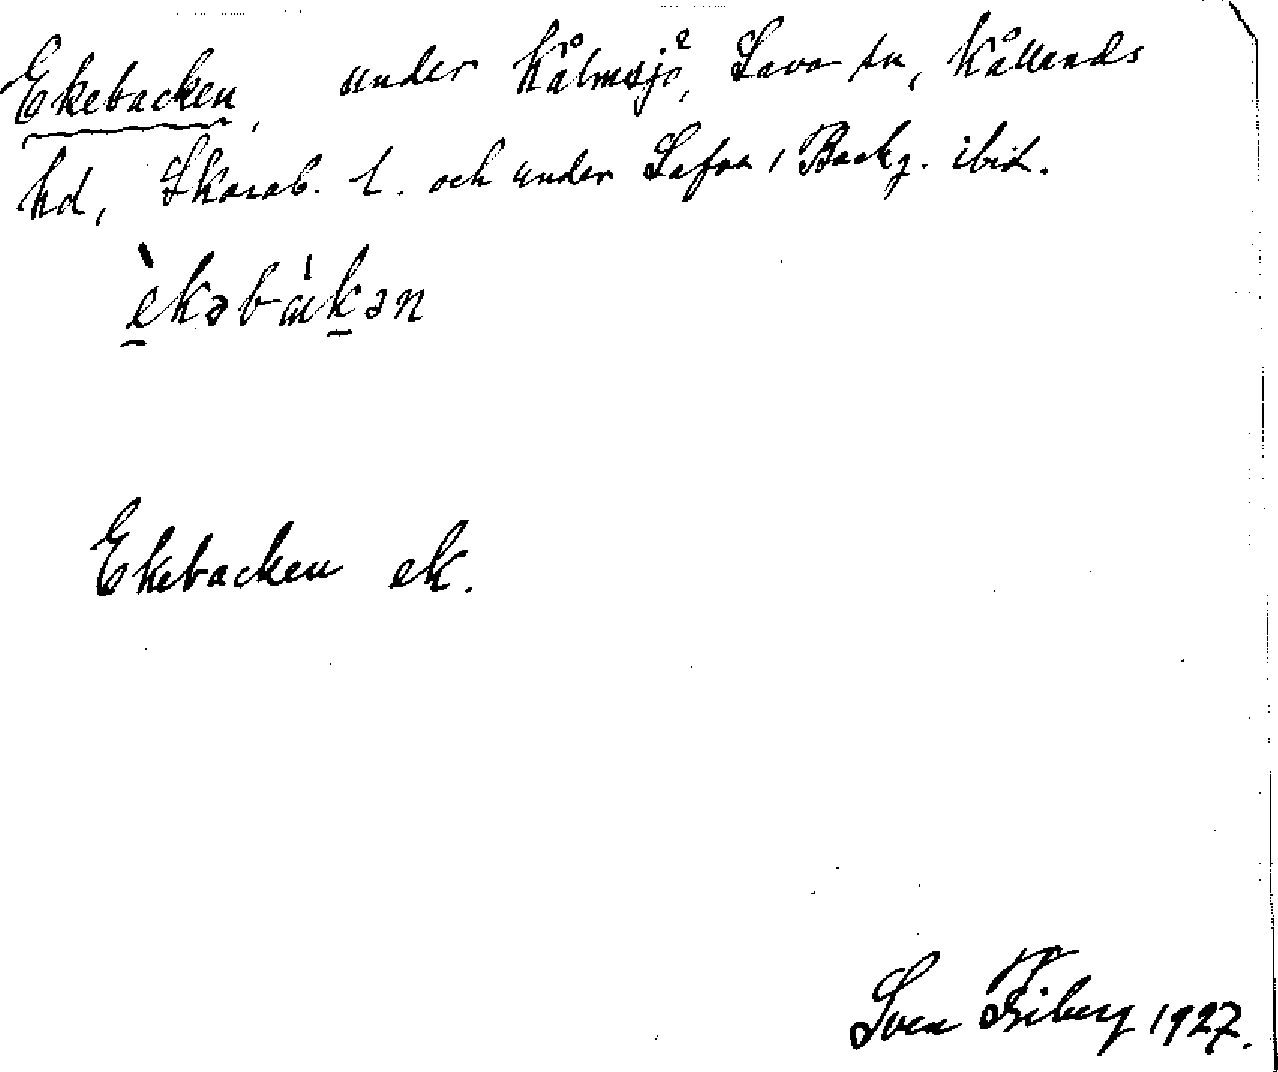 Ekebacken, under Kålmsjö, Sava sn, Kållands
hd, Skarab. l. och under Backg. ibid.
èkəbákən
Ekebacken ek.
Sven Friberg 1927.